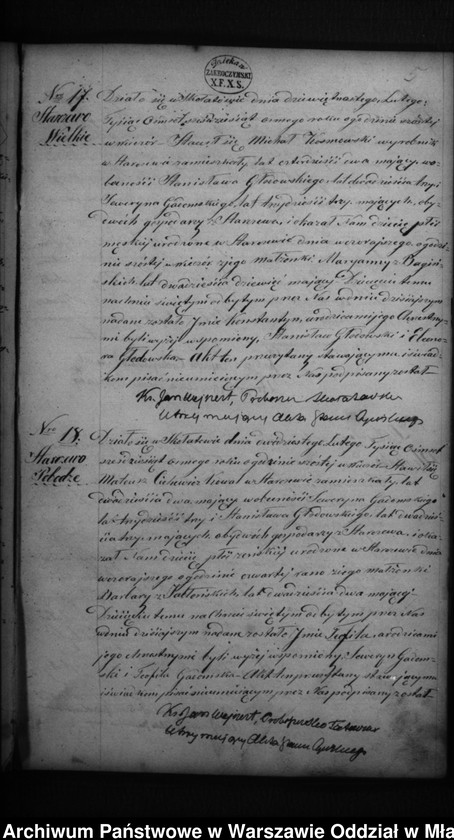 Dziekan
ZAKROCZYMSKI
X.F.X.S.
5
Nro 17.
Starzewo
Wielkie
Działo się w Skołatowie dnia dziewiętnastego Lutego
Tysiąc Ośmset sześćdziesiąt ósmego roku o godzinie szóstej
wieczór. Stawił się Michał Kosmowski wyrobnik
w Starzewie zamieszkały lat czterdzieści dwa mający w o-
becności Stanisława Głozowskiego lat dwadzieścia trzy i
Seweryna Gadomskiego, lat trzydzieści trzy mających, oby-
dwóch gospodarzy z Starzewa, i okazał Nam dziecię płci
męzkiej urodzone w Starzewie dnia wczorajszego o godzi-
nie szóstej wieczór z jego małżonki Maryanny z
lat dwadzieścia dziewięć mającej. Dziecięciu temu
na chrzcie świętym odbytym przez Nas w dniu dzisiejszym
nadane zostało Imie Konstantyn, a rodzicami jego Chrzestny-
mi byli wyżej wspomniony Stanisław Głozowski i Eleono-
ra Głodowska. Akt ten przeczytany stawającemu i świad-
kom pisać nieumiejącym przez Nas podpisany został.
Ks. Jan Wejnert, Proboszcz
Utrzymujący Akta Stanu Cywilnego
Nro 18.
Starzewo
Działo się w Skołatowie dnia dwudziestego Lutego Tysiąc Ośmset
sześćdziesiąt ósmego roku o godzinie szóstej wieczór. Stawił się
Mateusz w Starzewie zamieszkały lat
dwadzieścia dwa mający w obecności Seweryna Gadomskiego
lat trzydzieści trzy i Stanisława Głozowskiego, lat dwadzie-
ścia trzy mających, obydwóch gospodarzy z Starzewa, i oka-
zał Nam dziecię płci żeńskiej urodzone w Starzewie dnia
wczorajszego o godzinie czwartej rano z jego małżonki
Barbary z lat dwadzieścia dwa mającej.
Dziecięciu temu na Chrzcie świętym odbytym przez Nas
w dniu dzisiejszym nadane zostało Imie Teofila, a rodzicami
jego chrzestnymi byli wyżej wspomniony Seweryn Gadom-
ski i Teofila Gadomska. Akt ten przeczytany stawającemu
i świadkom pisać nieumiejącym przez Nas podpisany został.
Ks. Jan Wejnert, Proboszcz
Utrzymujący Akta Stanu Cywilnego
Archiwum Państwowe w Warszawie Oddział w Mła